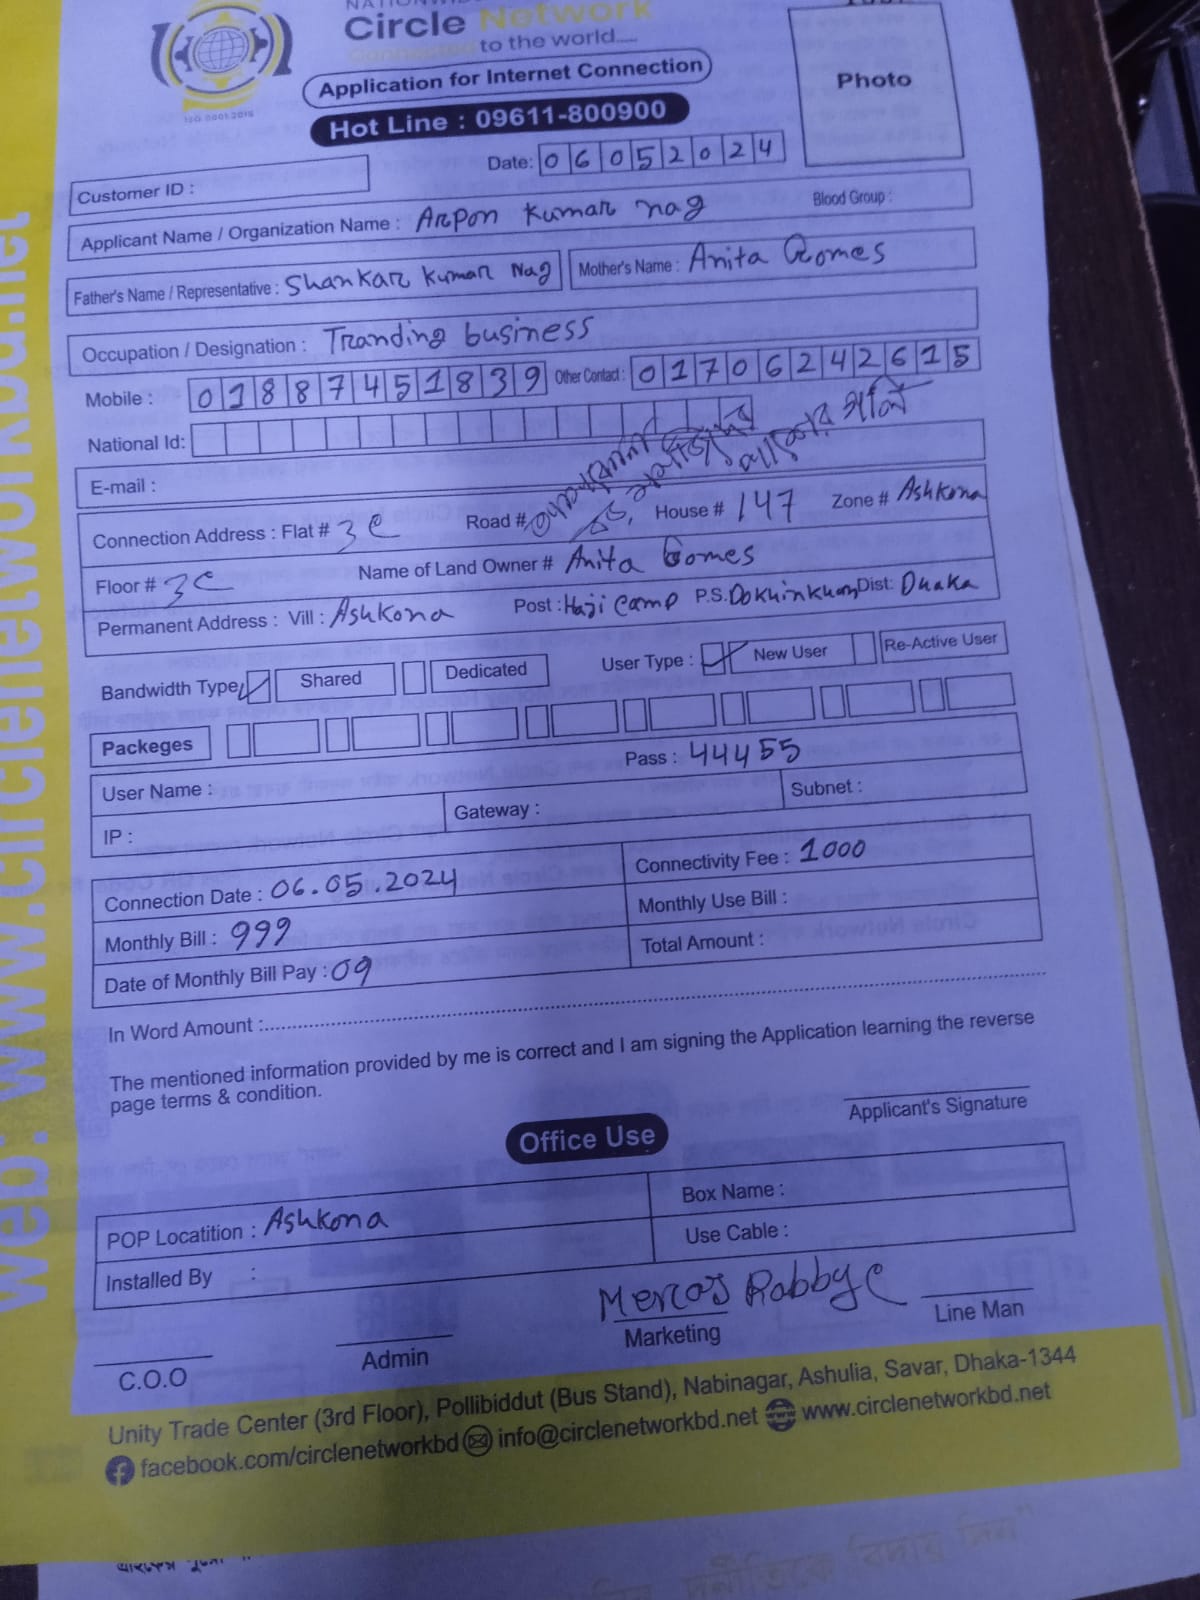 Circle Network
Connected to the world....
Application for Internet Connection
Hot Line : 09611-800900
Photo
ISO 9001:2015
Date: 06052024
Customer ID :
Applicant Name / Organization Name : Arpon Kumar nag Blood Group :
Father's Name / Representative : Shankar Kumar Nag Mother's Name : Anita Gomes
Occupation / Designation : Tranding business
Mobile : 01887451839 Other Contact : 01706242615
National Id:
E-mail :
Connection Address : Flat # 3C Road # House # 147 Zone # Ashkona
Floor # 3C Name of Land Owner # Anita Gomes
Permanent Address : Vill : Ashkona Post : Haji Camp P.S. Dist: Dhaka
Bandwidth Type Shared Dedicated User Type : New User Re-Active User
Packeges
User Name : Pass : 44455
IP : Gateway : Subnet :
Connection Date : 06.05.2024 Connectivity Fee : 1000
Monthly Bill : 999 Monthly Use Bill :
Date of Monthly Bill Pay : 09 Total Amount :
In Word Amount :
The mentioned information provided by me is correct and I am signing the Application learning the reverse
page terms & condition.
Applicant's Signature
Office Use
POP Locatition : Ashkona Box Name :
Installed By : Use Cable :
Mercos Rabbye
C.O.O Admin Marketing Line Man
Unity Trade Center (3rd Floor), Pollibiddut (Bus Stand), Nabinagar, Ashulia, Savar, Dhaka-1344
facebook.com/circlenetworkbd info@circlenetworkbd.net www.circlenetworkbd.net
web: www.circlenetworkbd.net